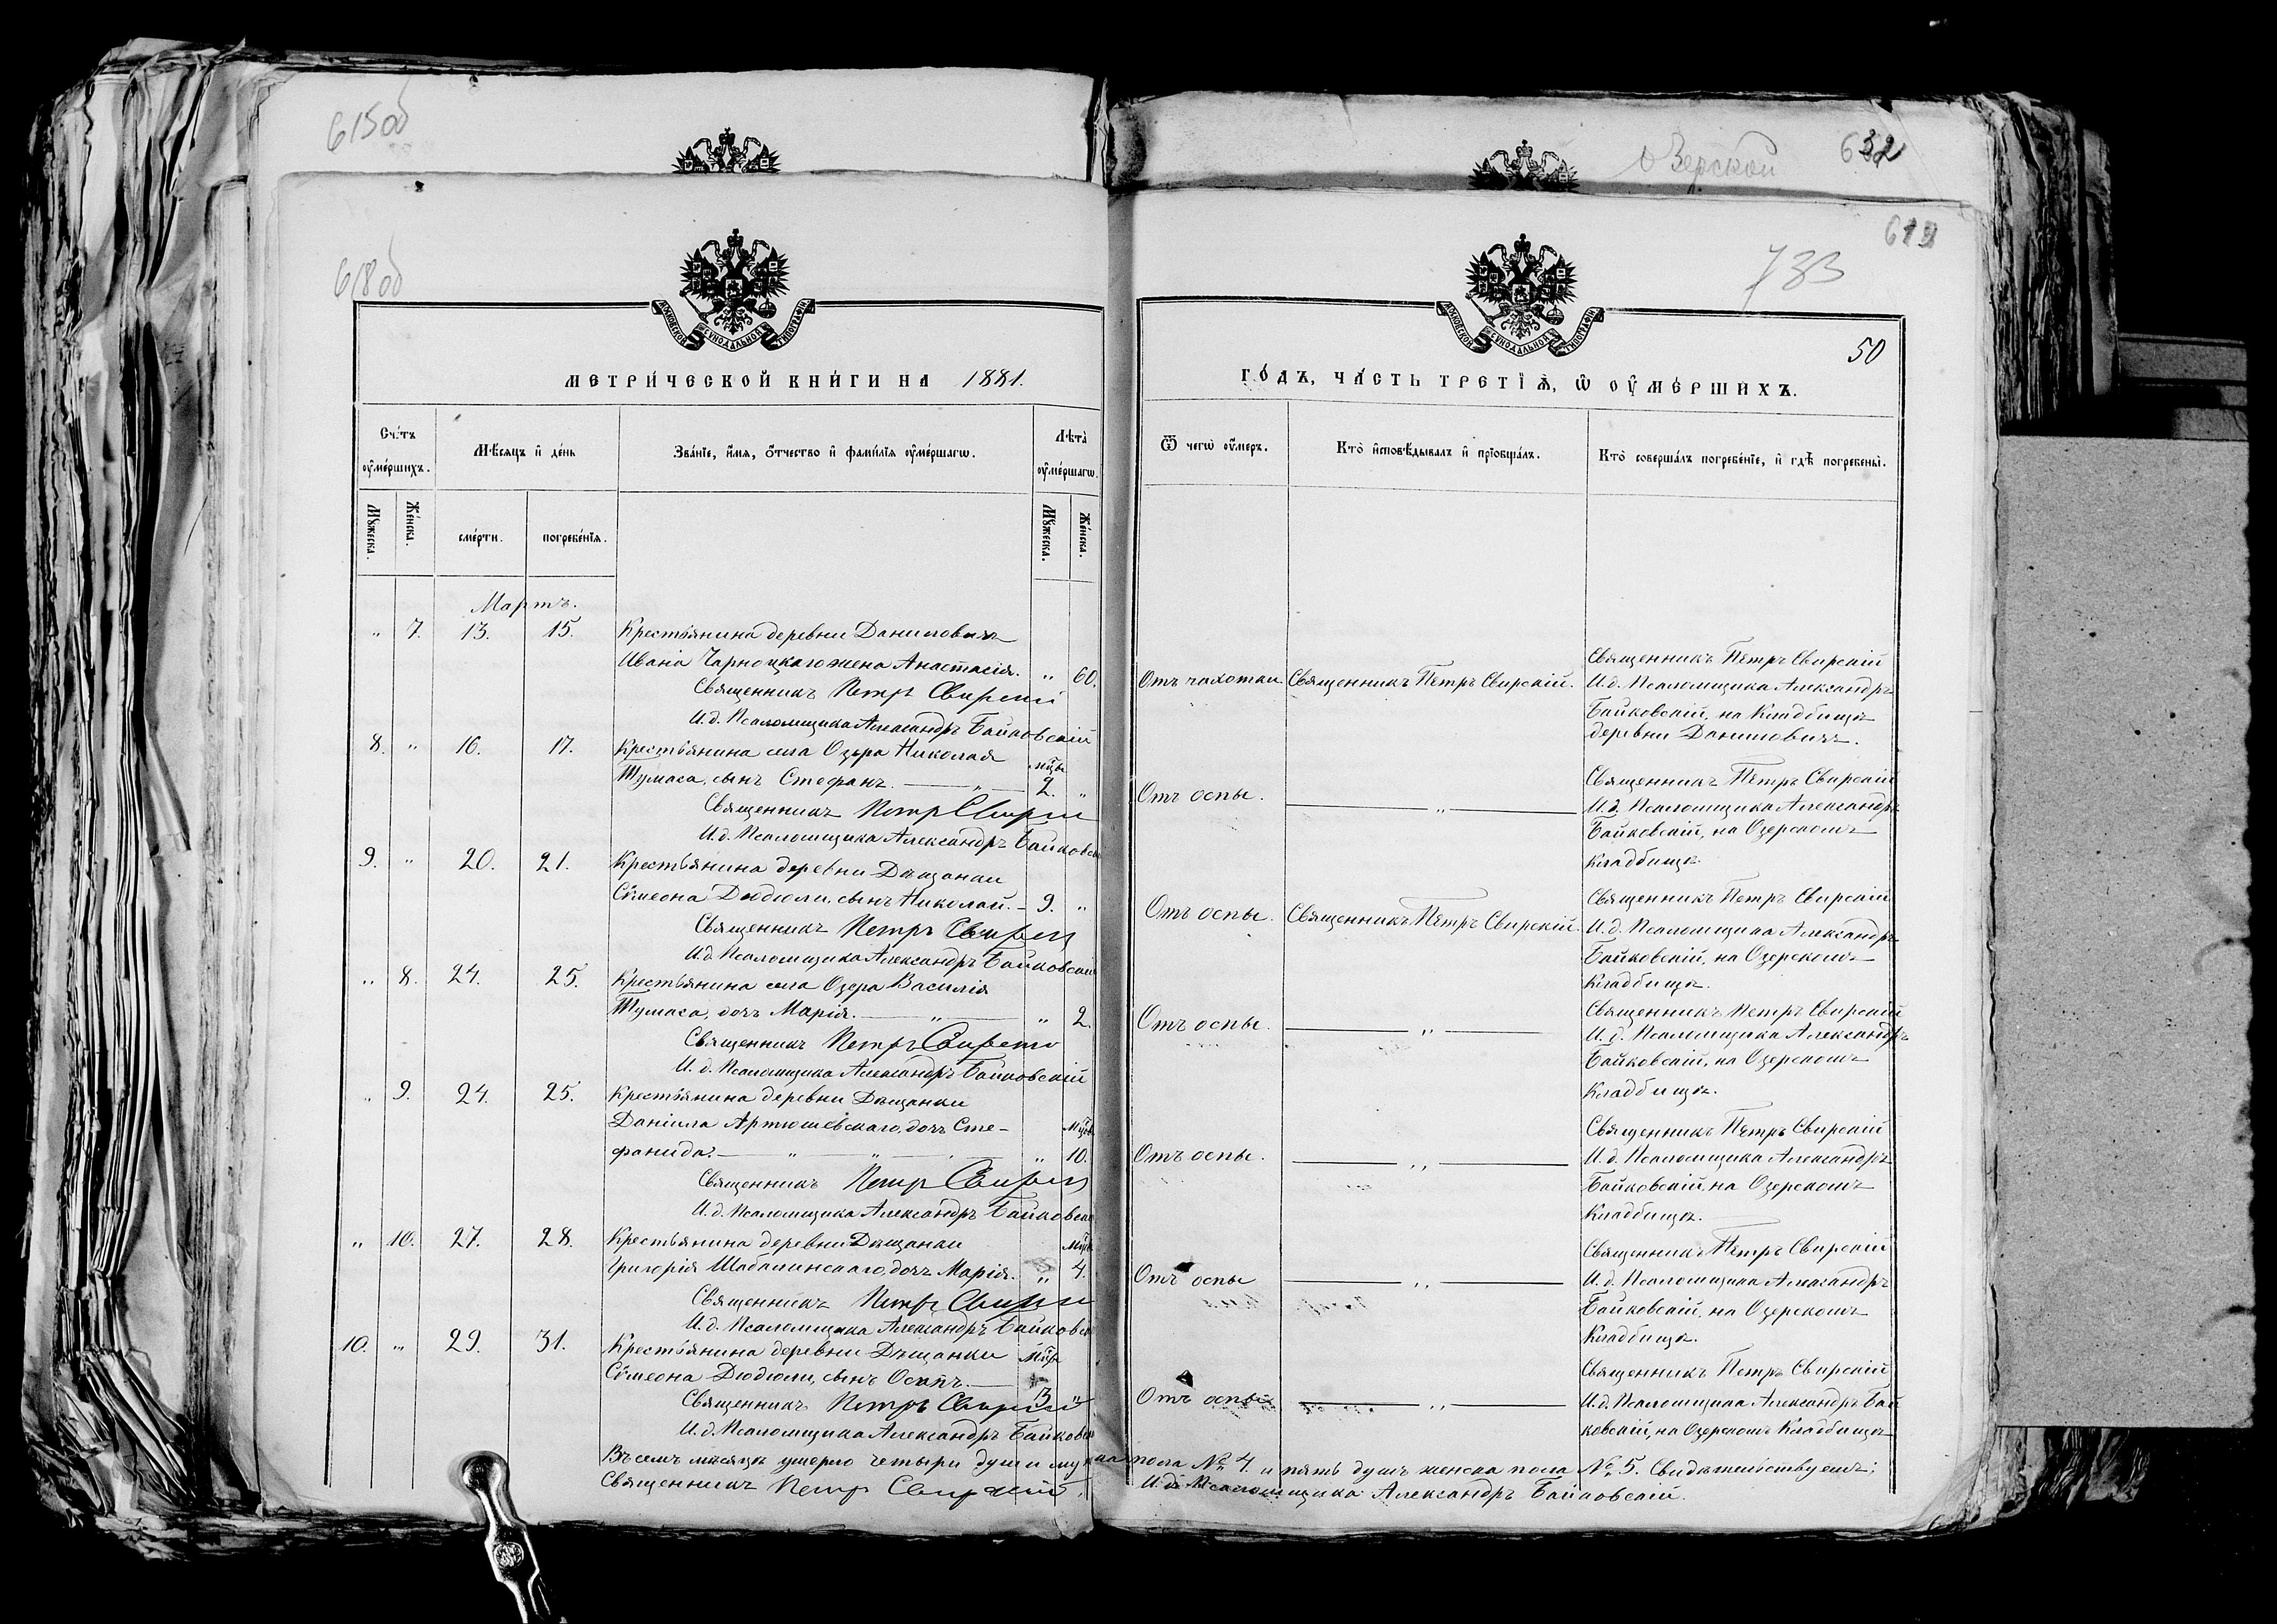 615об
Озерской
632
618об
733
МОСКОВСКОЙ СѴНОДАЛЬНОЙ ТИПОГРАФІИ
МОСКОВСКОЙ СѴНОДАЛЬНОЙ ТИПОГРАФІИ
50
МЕТРИ́ЧЕСКОЙ КНИ́ГИ НА 1881.
ГО́ДЪ, ЧА́СТЬ ТРЕТІѦ, Ѡ ОУ҆МЕ́РШИХЪ.
Сче́тъ оу҆ме́ршихъ.
Мѣ́сяцъ и҆ де́нь
Зва́нїе, и҆́мя, ѻ҆́тчество и҆ фами́лїя оу҆ме́ршагѡ.
Лѣта̀ оу҆ме́ршагѡ.
Ѿ чегѡ̀ оу҆́меръ.
Кто̀ и҆сповѣ́дывалъ и҆ прїобща́лъ.
Кто̀ соверша́лъ погребе́нїе, и҆ гдѣ̀ погребены̀.
Мꙋ́жеска.
Же́нска.
сме́рти.
погребе́нїя.
Мꙋ́жеска.
Же́нска.
Мартъ.
„ 7. 13. 15. Крестьянина деревни Даниловичъ
Ивана Чарноцкаго жена Анастасія. „ 60.
Священникъ Петръ Свирскій
И.д. Псаломщика Александръ Байковскій
Отъ чахотки. Священникъ Петръ Свирскій.
Священникъ Петръ Свирскій
И.д. Псаломщика Александръ
Байковскій, на Кладбищѣ
деревни Даниловичъ.
8. „ 16. 17. Крестьянина села Озера Николая
мцы
Тумаса, сынъ Стефанъ. — „ — 2. „
Священникъ Петръ Свирскій
И.д. Псаломщика Александръ Байковскій
Отъ оспы. — „ —
Священникъ Петръ Свирскій
И.д. Псаломщика Александръ
Байковскій, на Озерскомъ
Кладбищѣ
9. „ 20. 21. Крестьянина деревни Дѣщанки
Сѵмеона Дюдюли, сынъ Николай. — 9. „
Священникъ Петръ Свирскій
И.д. Псаломщика Александръ Байковскій
Отъ оспы. Священникъ Петръ Свирскій.
Священникъ Петръ Свирскій
И.д. Псаломщика Александръ
Байковскій, на Озерскомъ
Кладбищѣ.
„ 8. 24. 25. Крестьянина села Озера Василія
Тумаса, дочь Марія. — „ — „ 2.
Священникъ Петръ Свирскій
И.д. Псаломщика Александръ Байковскій
Отъ оспы. — „ —
Священникъ Петръ Свирскій
И.д. Псаломщика Александръ
Байковскій, на Озерскомъ
Кладбищѣ.
„ 9. 24. 25. Крестьянина деревни Дѣщанки
Даніила Артюшевскаго, дочь Сте-
Мцевъ
фанида. — „ — „ — „ 10.
Священникъ Петръ Свирскій
И.д. Псаломщика Александръ Байковскій
Отъ оспы. — „ —
Священникъ Петръ Свирскій
И.д. Псаломщика Александръ
Байковскій, на Озерскомъ
Кладбищѣ.
„ 10. 27. 28. Крестьянина деревни Дѣщанки
Мцы
Григорія Шабалинскаго, дочь Марія. „ 4.
Священникъ Петръ Свирскій
И.д. Псаломщика Александръ Байковскій
Отъ оспы — „ —
Священникъ Петръ Свирскій
И.д. Псаломщика Александръ
Байковскій, на Озерскомъ
Кладбищѣ.
10. „ 29. 31. Крестьянина деревни Дѣщанки
Мцы
Сѵмеона Дюдюли, сынъ Осипъ. —
3 „
Священникъ Петръ Свирскій
И.д. Псаломщика Александръ Байковскій
Отъ оспы — „ —
Священникъ Петръ Свирскій
И.д. Псаломщика Александръ Бай
ковскій, на Озерскомъ Кладбищѣ
Въ семъ мѣсяцѣ умерло четыри души мужска пола № 4. и пять душъ женска пола № 5. Свидѣтельствуемъ:
Священникъ Петръ Свирскій. И.д. Псаломщика Александръ Байковскій.